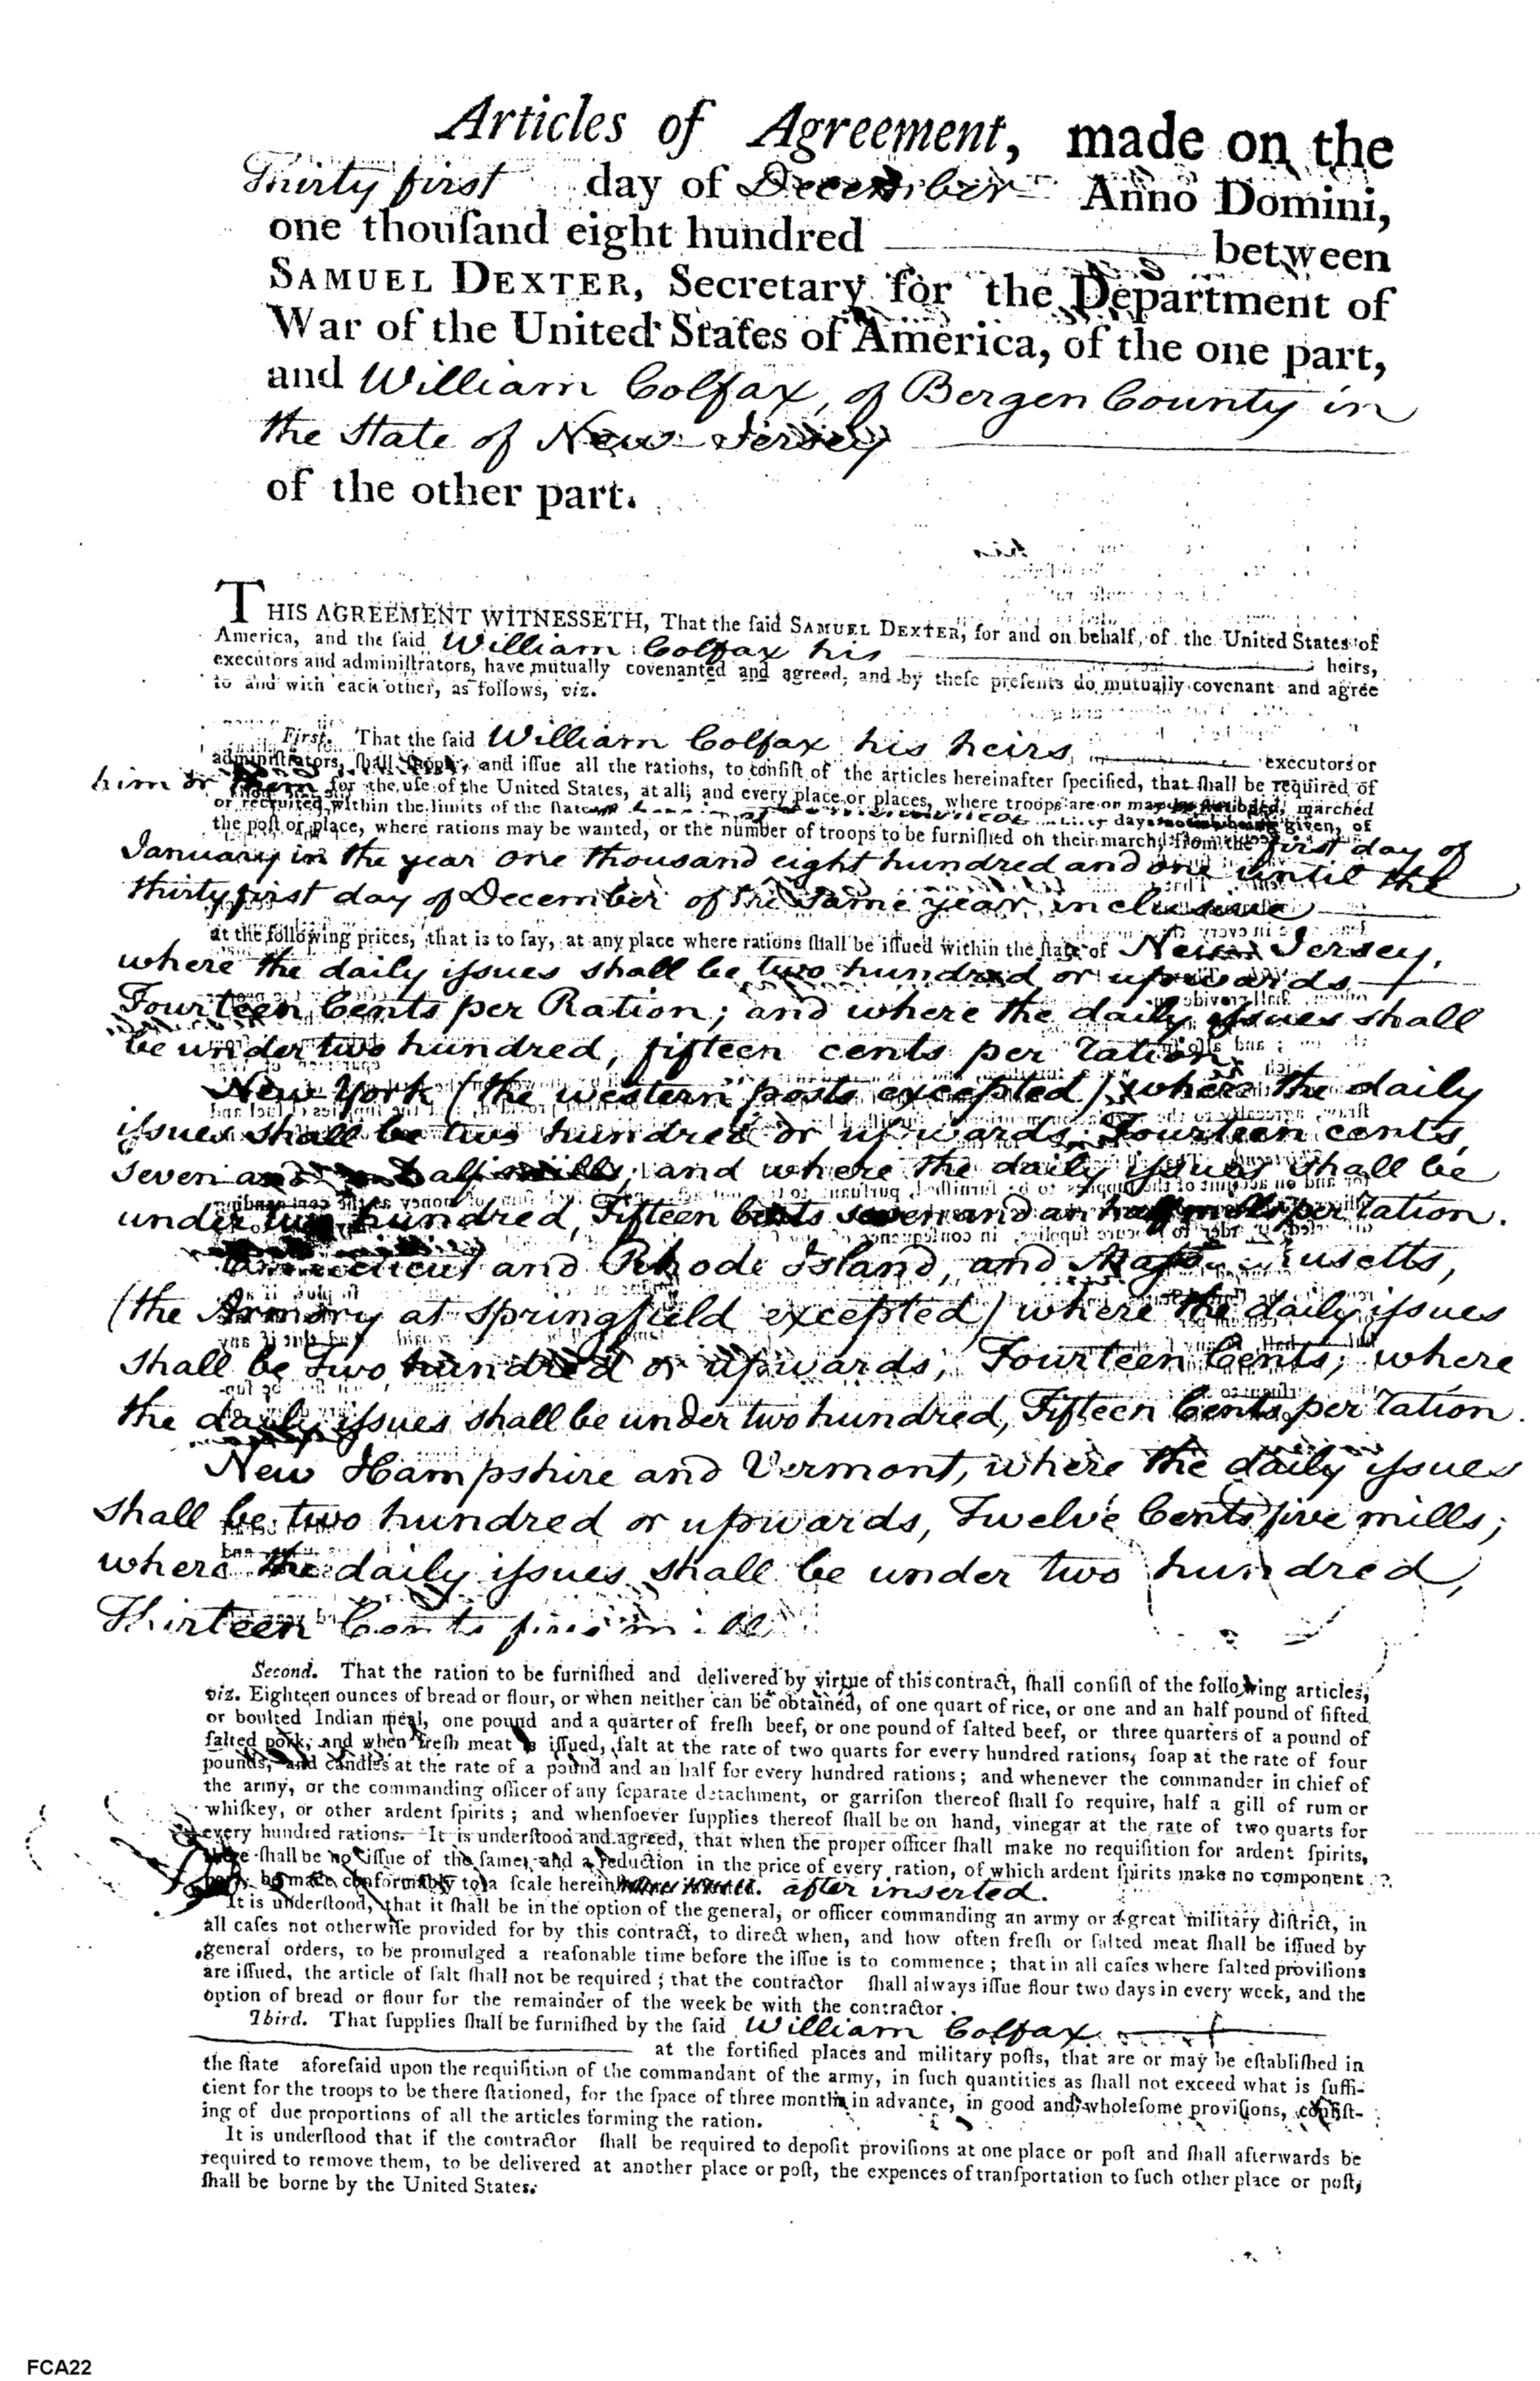 Articles of Agreement, made on the
Thirty first day of December Anno Domini,
one thouſand eight hundred between
SAMUEL DEXTER, Secretary for the Department of
War of the United States of America, of the one part,
and William Colfax, of Bergen County in
the State of New Jersey
of the other part.
THIS AGREEMENT WITNESSETH, That the ſaid SAMUEL DEXTER, for and on behalf, of the United States of
America, and the ſaid William Colfax his heirs,
executors and adminiſtrators, have mutually covenanted and agreed, and by theſe preſents do mutually covenant and agree
to and with each other, as follows, viz.
Firſt. That the ſaid William Colfax his heirs, executors or
adminiſtrators, ſhall ſupply, and iſſue all the rations, to conſiſt of the articles hereinafter ſpecified, that ſhall be required of
him or them for the uſe of the United States, at all, and every place or places, where troops are or may be marched
or recruited, within the limits of the ſtate day given, of
the poſt or place, where rations may be wanted, or the number of troops to be furniſhed on their march, from the first day of
January in the year one thousand eight hundred and one until the
thirty first day of December of the same year inclusive
at the following prices, that is to ſay, at any place where rations ſhall be iſſued within the ſtate of New Jersey,
where the daily iſsues shall be two hundred or upwards
Fourteen Cents per Ration; and where the daily iſsues shall
be under two hundred, fifteen cents per ration.
New York (the western posts excepted) where the daily
iſsues shall be two hundred or upwards, Fourteen cents,
seven and half mills; and where the daily iſsues shall be
under two hundred, Fifteen Cents seven and an half mills per ration.
Connecticut and Rhode Island, and Maſsachusetts,
(the Armory at Springfield excepted) where the daily iſsues
shall be Two hundred or upwards, Fourteen Cents; where
the daily iſsues shall be under two hundred, Fifteen Cents per ration.
New Hampshire and Vermont, where the daily iſsues
shall be two hundred or upwards, Twelve Cents five mills;
where the daily iſsues shall be under two hundred,
Thirteen Cents five mills
Second. That the ration to be furniſhed and delivered by virtue of this contract, ſhall conſiſt of the following articles,
viz. Eighteen ounces of bread or flour, or when neither can be obtained, of one quart of rice, or one and an half pound of ſifted
or boulted Indian meal, one pound and a quarter of freſh beef, or one pound of ſalted beef, or three quarters of a pound of
ſalted pork, and when freſh meat is iſſued, ſalt at the rate of two quarts for every hundred rations, ſoap at the rate of four
pounds, and candles at the rate of a pound and an half for every hundred rations; and whenever the commander in chief of
the army, or the commanding officer of any ſeparate detachment, or garriſon thereof ſhall ſo require, half a gill of rum or
whiſkey, or other ardent ſpirits; and whenſoever ſupplies thereof ſhall be on hand, vinegar at the rate of two quarts for
every hundred rations. It is underſtood and agreed, that when the proper officer ſhall make no requiſition for ardent ſpirits,
there ſhall be no iſſue of the ſame, and a reduction in the price of every ration, of which ardent ſpirits make no component
part, be made conformably to a ſcale herein after inserted.
It is underſtood, that it ſhall be in the option of the general, or officer commanding an army or a great military diſtrict, in
all caſes not otherwiſe provided for by this contract, to direct when, and how often freſh or ſalted meat ſhall be iſſued by
general orders, to be promulged a reaſonable time before the iſſue is to commence; that in all caſes where ſalted proviſions
are iſſued, the article of ſalt ſhall not be required; that the contractor ſhall always iſſue flour two days in every week, and the
option of bread or flour for the remainder of the week be with the contractor.
Third. That ſupplies ſhall be furniſhed by the ſaid William Colfax
at the fortified places and military poſts, that are or may be eſtabliſhed in
the ſtate aforeſaid upon the requiſition of the commandant of the army, in ſuch quantities as ſhall not exceed what is ſuffi-
cient for the troops to be there ſtationed, for the ſpace of three months in advance, in good and wholeſome proviſions, conſiſt-
ing of due proportions of all the articles forming the ration.
It is underſtood that if the contractor ſhall be required to depoſit proviſions at one place or poſt and ſhall afterwards be
required to remove them, to be delivered at another place or poſt, the expences of tranſportation to ſuch other place or poſt,
ſhall be borne by the United States.
FCA22